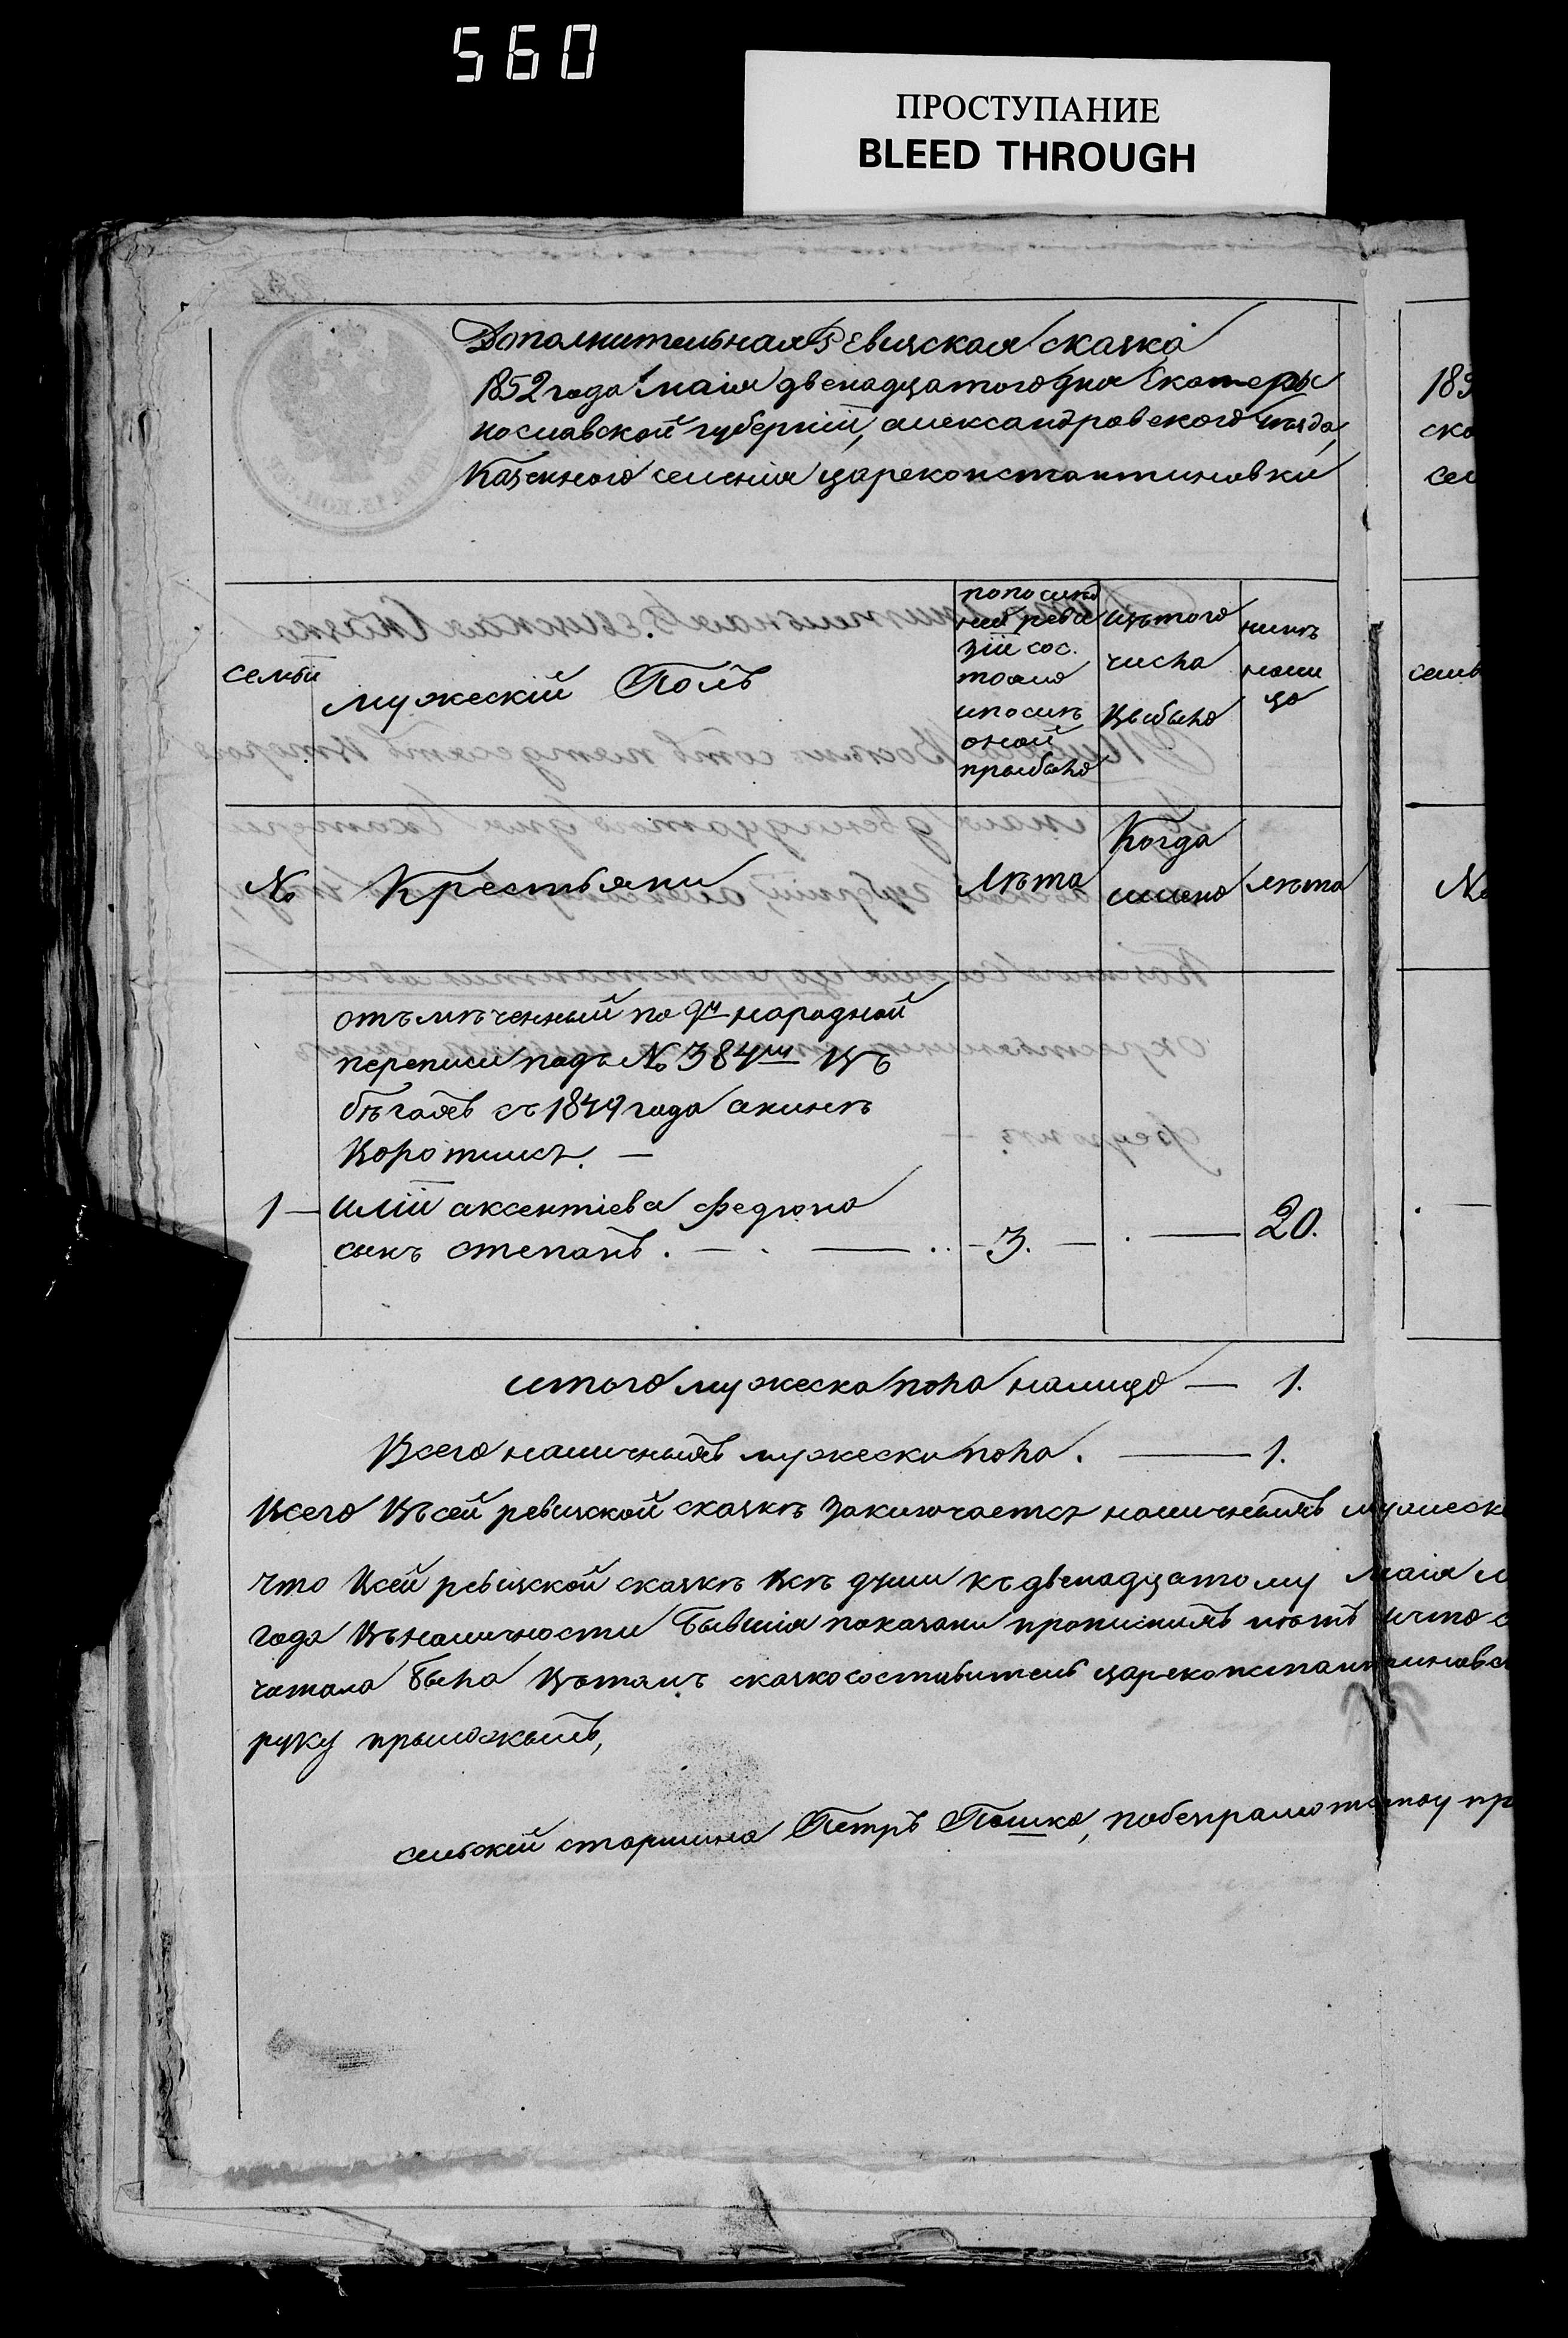 560
ПРОСТУПАНИЕ
BLEED THROUGH
Дополнительная Ревизская сказка
1852 года маія двенадцатого дня Екатеры
нославской губерніи, александровского уѣзда,
Казенного селенія цареконстантиновки
183
ско
сел
семьи
мужескій Полъ
по послѣд
ней реви
зіи сос.
тояло
и послѣ
оной
прыбыло
изъ того
числа
выбыло
нынѣ
на ли
цо
семь
№
Крестьяни
Лѣта
Когда
именно
лѣта
№
отъмѣченный по 9й народной
переписи подъ № 384м въ
бѣгахъ съ 1849 года а нынѣ
Воротился. —
1 — Иліи аксентіева Федюна
сынъ степанъ. — . — .. — 3. — . — 20.
итого мужеска пола налицо — 1.
Всего наличныхъ мужеска пола. — 1.
Всего Въ сей ревизской сказкѣ Заключается наличныхъ мужеск
что Усей ревизской сказкѣ Всѣ души къ двенадцатому маія м
года Въ наличности Бывшія показани прописныхъ нѣтъ и что
Была Въ томъ сказкосоставитель цареконстантиновс
руку прыложылъ,
сельскій старшина Петръ Пошко, по безграмотству пр